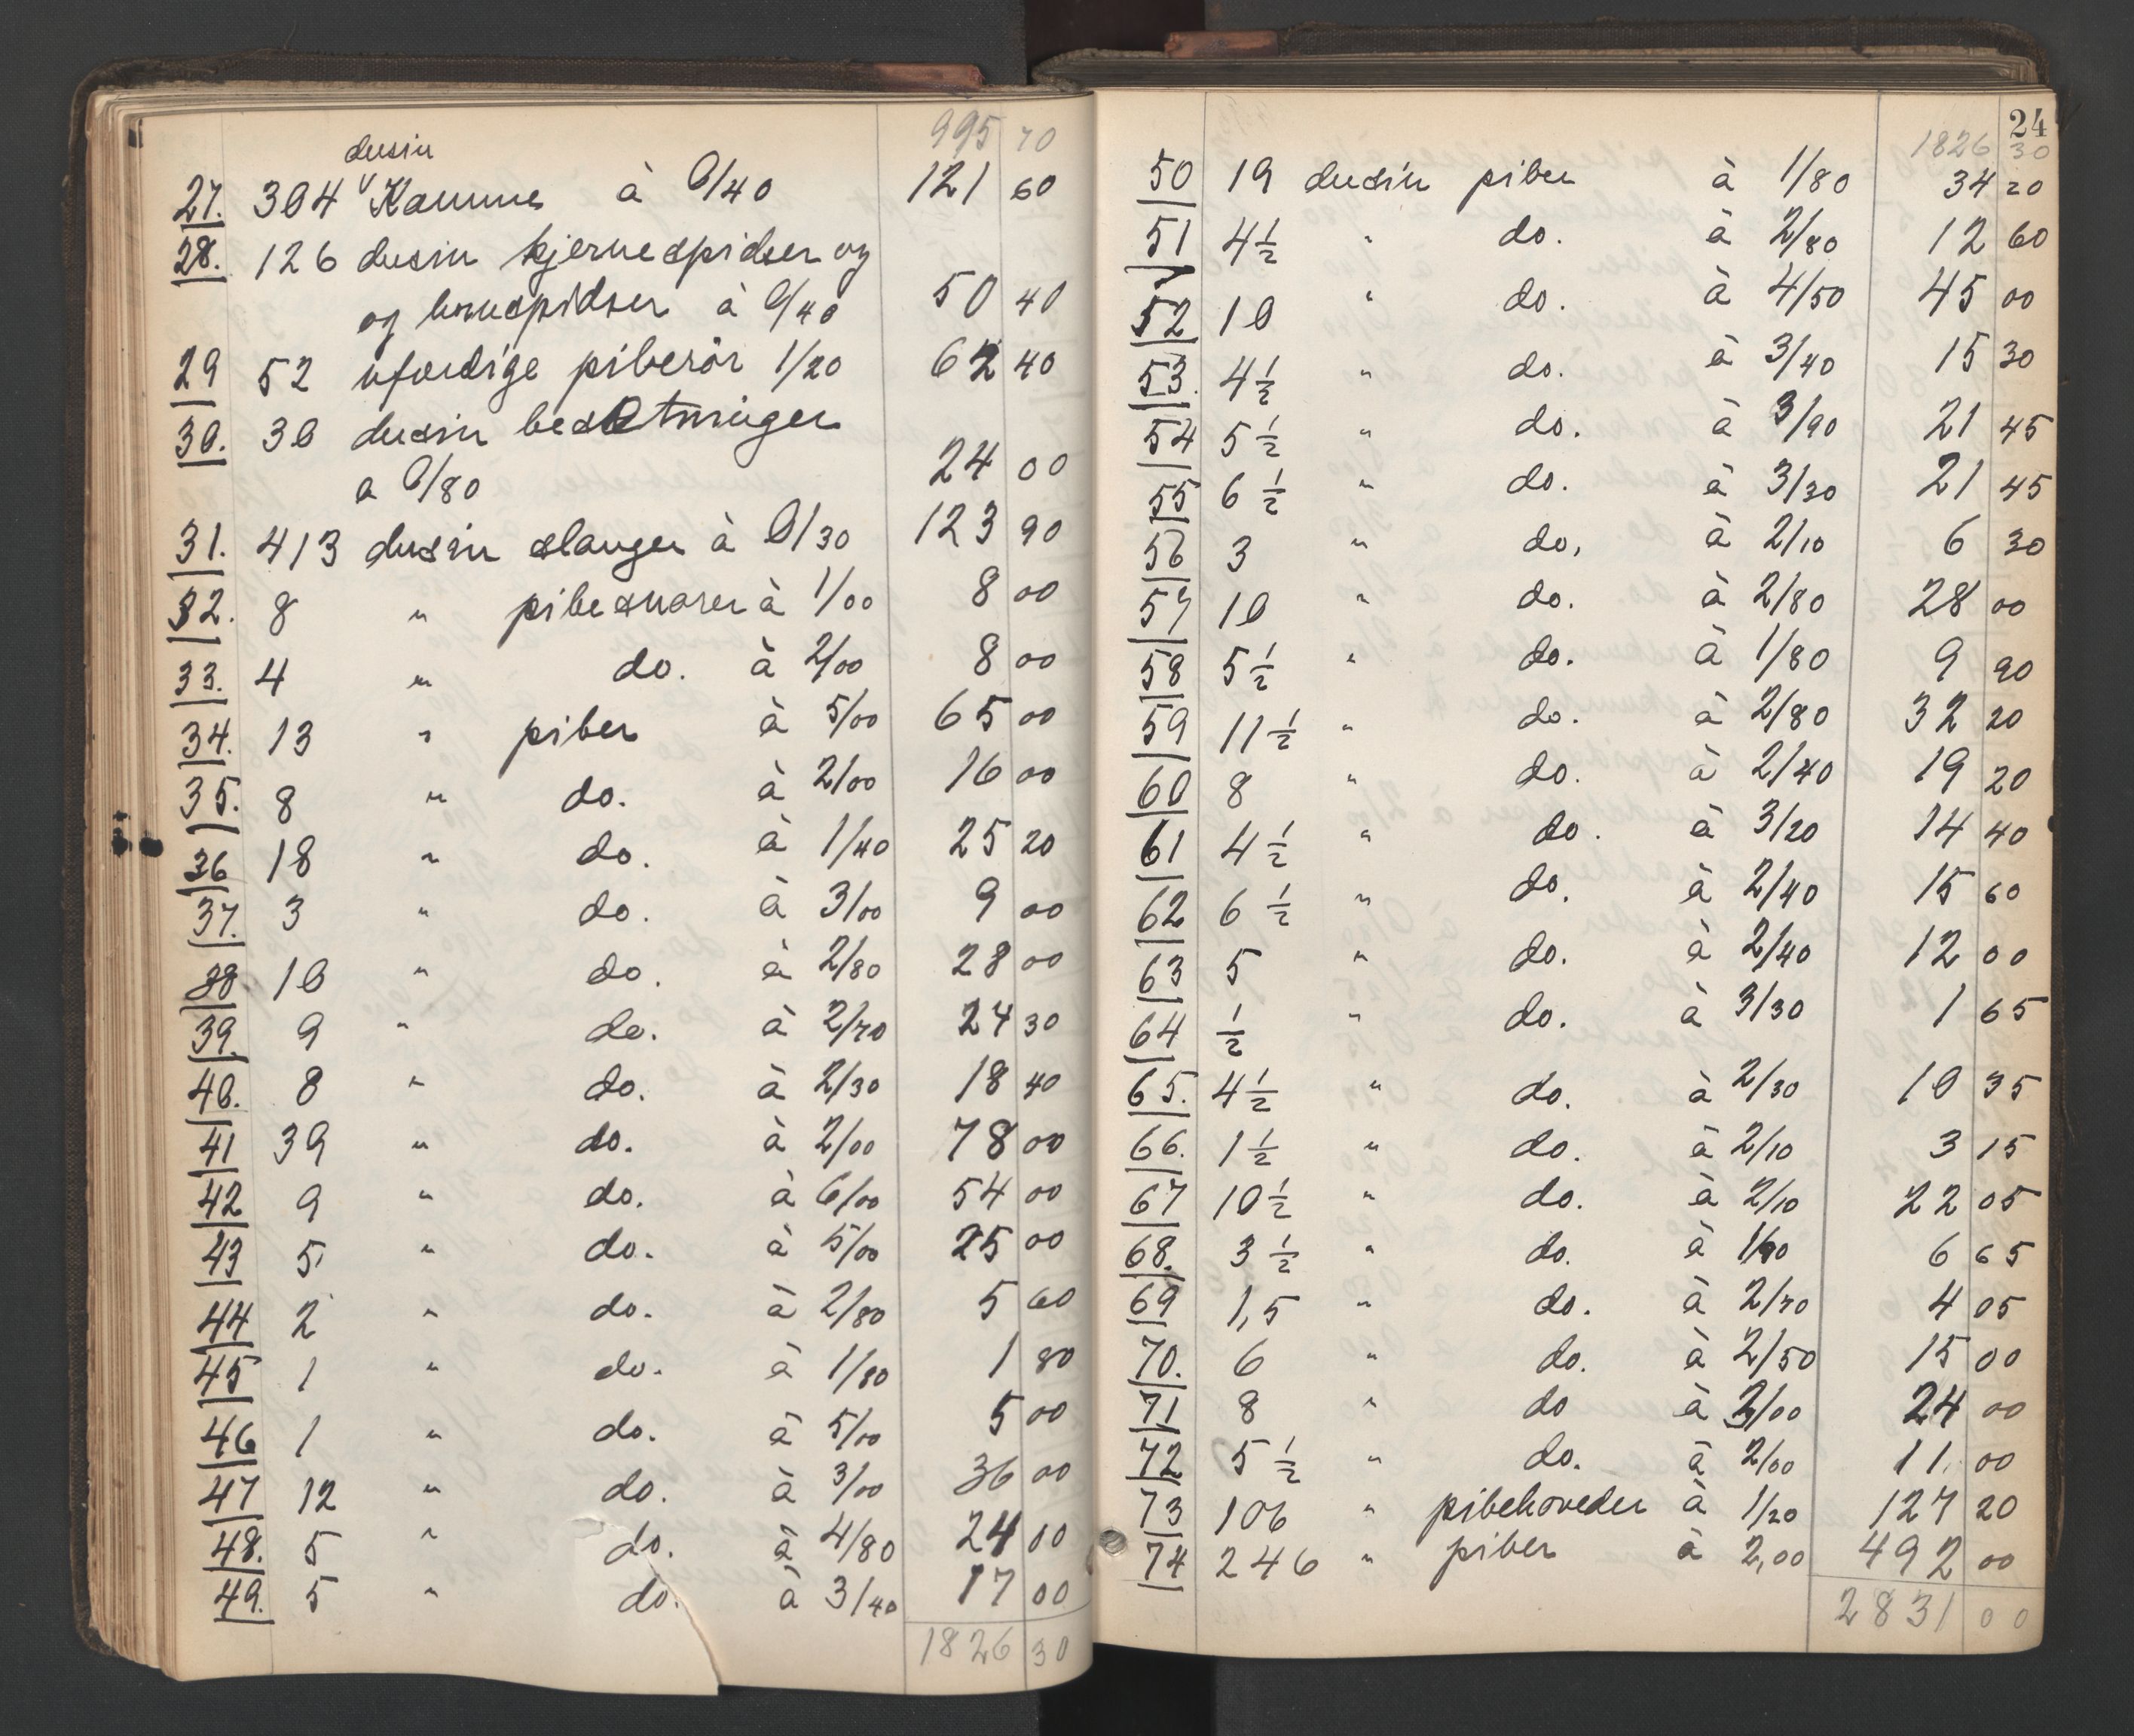 995 70
dusin
27. 304 Kamme à 0/40 121 60
28. 126 dusin kjernespidser og
og hornspidser à 0/40 50 40
29 52 ufærdige piberör 1/20 62 40
30. 30 dusin besetninger
a 0/80 24 00
31. 413 dusin slanger à 0/30 123 90
32. 8 " pibesnorer à 1/00 8 00
33. 4 " do. à 2/00 8 00
34. 13 " piber à 5/00 65 00
35. 8 " do. à 2/00 16 00
36 18 " do. à 1/40 25 20
37. 3 " do. à 3/00 9 00
38 10 " do. à 2/80 28 00
39. 9 " do. à 2/70 24 30
40. 8 " do. à 2/30 18 40
41 39 " do. à 2/00 78 00
42 9 " do. à 6/00 54 00
43 5 " do. à 5/00 25 00
44 2 " do. à 2/80 5 60
45 1 " do. à 1/80 1 80
46 1 " do. à 5/00 5 00
47 12 " do. à 3/00 36 00
48. 5 " do. à 4/80 24 00
49. 5 " do. à 3/40 17 00
1826 30
24
1826 30
50 19 dusin piber à 1/80 34 20
51 4 1/2 " do. à 2/80 12 60
52 10 " do. à 4/50 45 00
53. 4 1/2 " do. à 3/40 15 30
54 5 1/2 " do. à 3/90 21 45
55 6 1/2 " do. à 3/30 21 45
56 3 " do. à 2/10 6 30
57 10 " do. à 2/80 28 00
58 5 1/2 " do. à 1/80 9 90
59 11 1/2 " do. à 2/80 32 20
60 8 " do. à 2/40 19 20
61 4 1/2 " do. à 3/20 14 40
62 6 1/2 " do. à 2/40 15 60
63 5 " do. à 2/40 12 00
64 1/2 " do. à 3/30 1 65
65. 4 1/2 " do. à 2/30 10 35
66. 1 1/2 " do. à 2/10 3 15
67 10 1/2 " do. à 2/10 22 05
68. 3 1/2 " do. à 1/90 6 65
69 1,5 " do. à 2/70 4 05
70. 6 " do. à 2/50 15 00
71 8 " do à 3/00 24 00
72 5 1/2 " do. à 2/00 11. 00
73 106 " pibehoveder à 1/20 127 20
74 246 " piber à 2,00 492 00
2831 00